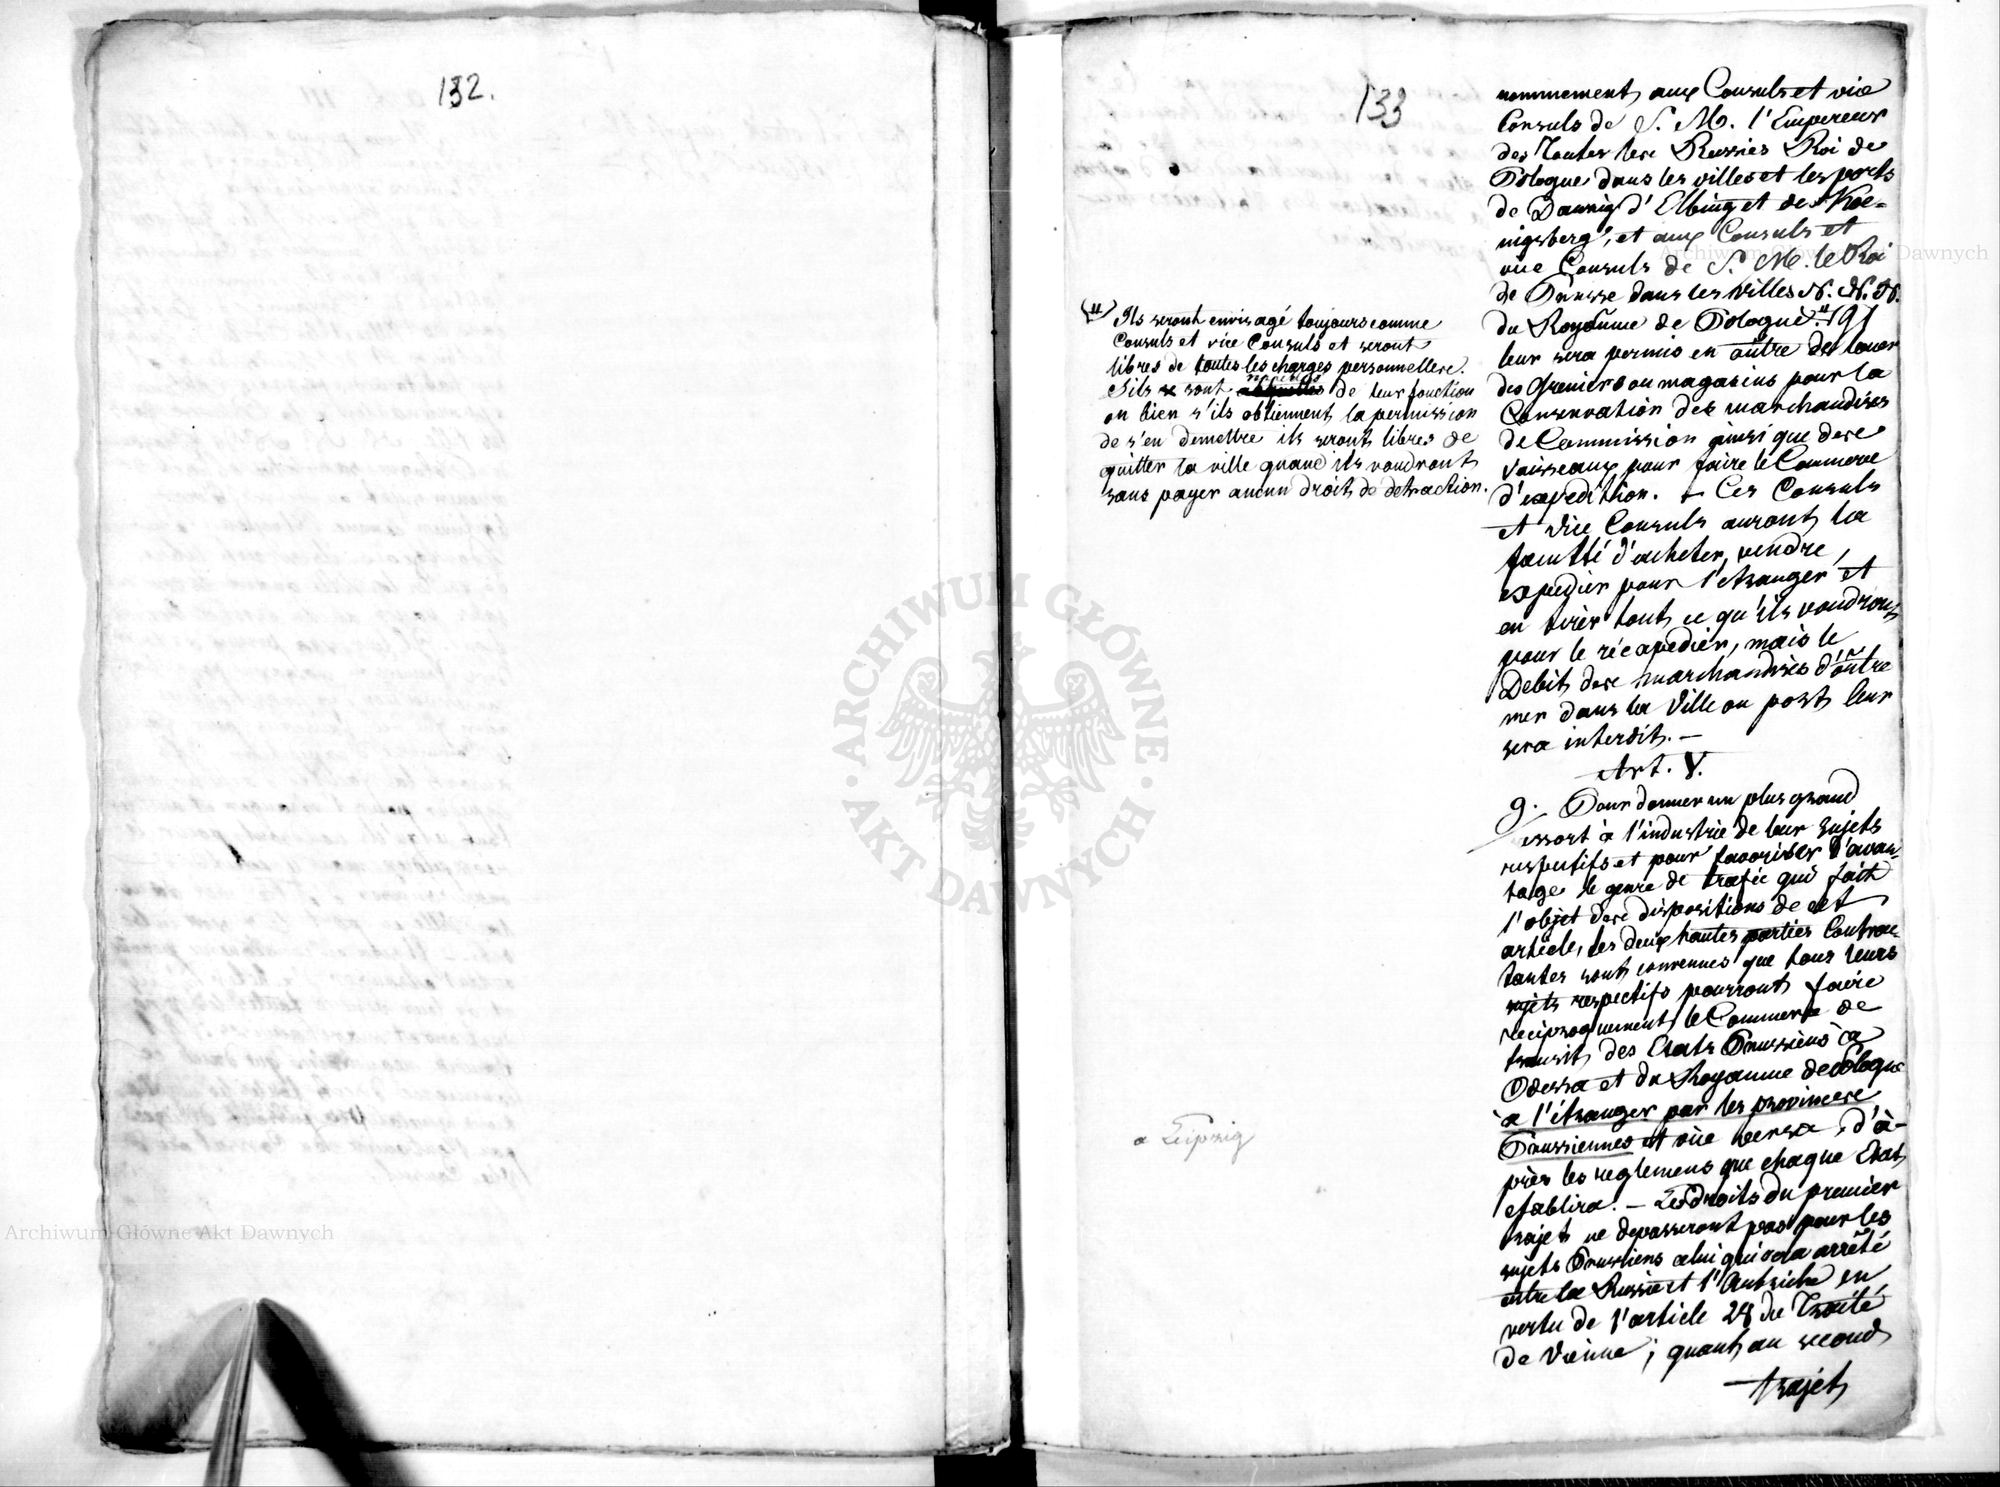 132.
133
nommement aux Consuls et vice
Consuls de S. M. l'Empereur
des Toutes les Russies Roi de
Pologne dans les villes et les ports
de Danzig d'Elbing et de Koe-
nigsberg, et aux Consuls et
vice Consuls de S. M. le Roi
de Prusse dans les villes N. N. N.
du Royaume de Pologne.
leur sera permis en outre de louer
des Greniers ou magasins pour la
Conservation des marchandises
de Commission ainsi que des
vaisseaux pour faire le Commerce
d'expedition. – Ces Consuls
et vice Consuls auront la
faculté d'acheter, vendre,
expedier pour l'etranger et
en tirer tout ce qu'ils voudront
pour le réexpedier, mais le
Debit des marchandises d'outre
mer dans la Ville ou port leur
sera interdit. –
Art. V.
9. Pour donner un plus grand
essort à l'industrie de leur sujets
respectifs et pour favoriser d'avan-
tage le genre de trafic qui fait
l'objet des dispositions de cet
article, les deux hautes parties Contrac-
tantes sont convenues que tous leurs
sujets respectifs pourront faire
reciproquement le Commerce de
transit des Etats Prussiens à
Odessa et du Royaume de Pologne
à l'étranger par les provinces
Prussiennes et vice versa, d'à-
près les reglemens que chaque Etat
etablira. – Les droits du premier
trajet ne depasseront pas pour les
sujets Prussiens celui qui sera arrêté
entre la Russie et l'Autriche en
vertu de l'article 28 du Traité
de Vienne; quant au second
trajet
(a) Ils seront envisagé toujours comme
Consuls et vice Consuls et seront
libres de toutes les charges personnelles.
S'ils sont de leur fonction
ou bien s'ils obtiennent la permission
de s'en demettre ils seront libres de
quitter la ville quand ils voudront
sans payer aucun droit de detraction.
a Leipzig
Archiwum Główne Akt Dawnych
ARCHIWUM GŁÓWNE AKT DAWNYCH
Archiwum Główne Akt Dawnych